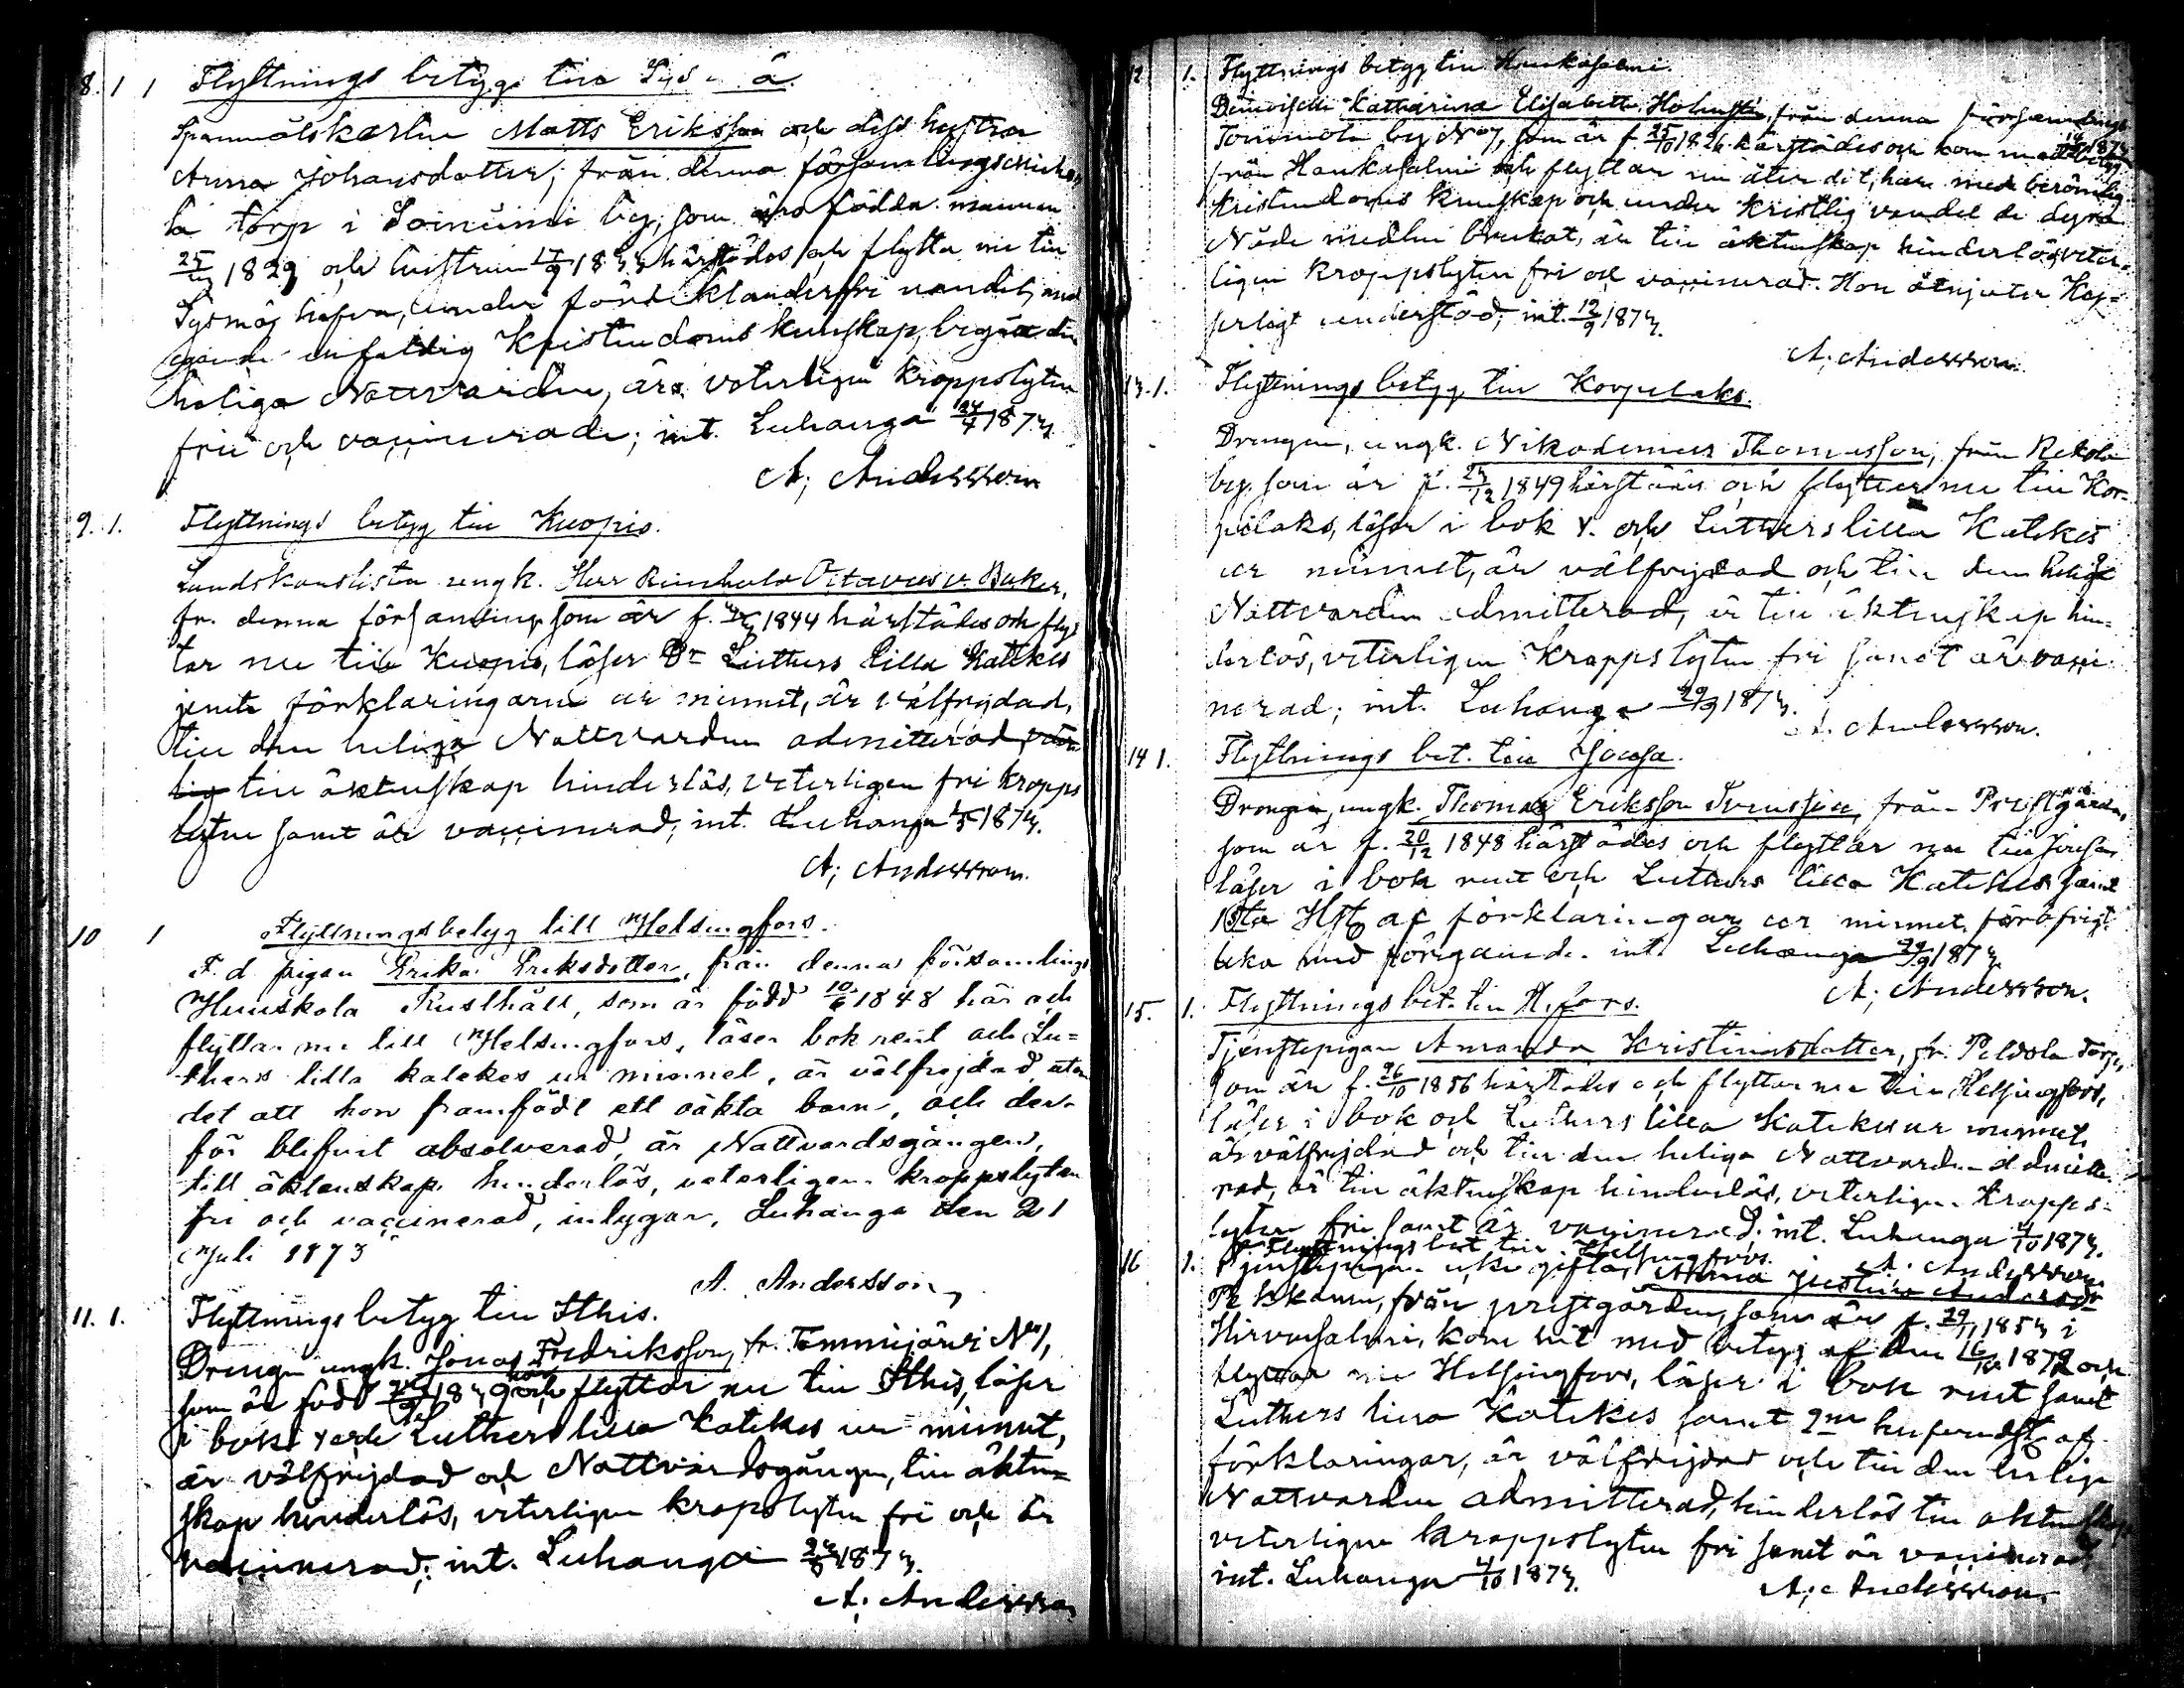 8. 1 1 Flyttnings betyg till Sysmä.
Spannmålskarlen Matts Eriksson och dess hustru
Anna Johansdotter, från denna församlings
torp i Loinumi by, som äro födda mannen
1829 och hustrun härstädes och flytta nu till
Sysmä, hafva, under fördt klanderfri vandel, med
egande enfaldig Kristendoms kunskap, begått den
heliga Nattvarden, äro veterligen kroppslyten
fri och vaccinerade; int. Luhanga 24/7 1873
A; Andersson
9. 1. Flyttnings betyg till Kuopio.
Landskanslisten ungk. Herr Reinhold Octavius v. Baker,
fr. denna församling som är f. 1844 härstädes och flyt
tar nu till Kuopio, läser Dr Lutters lilla Kattkes
jemte förklaringarne ur minnet, är välfrejdad,
till den heliga Nattvarden admitterad,
till äktenskap hinderlös, veterligen fri kropps
lyten samt är vaccinerad, int. Luhanga 1873.
A; Andersson.
10 1 Flyttningsbetyg till Helsingfors.
F. d. pigan Erika Eriksdotter, från denna församlings
Huuskola Rusthåll, som är född 10/6 1848 här och
flyttar nu till Helsingfors, läser bok rent och Lu=
thers lilla katekes ur minnet, är välfrejdad, utom
det att hon framfödt ett oäkta barn, och der-
för blifvit absolverad, är Nattvardsgången,
till äktenskap hinderlös, veterligen kroppslyten
fri och vaccinerad, intygar, Luhanga den 21
Juli 1873
A. Andersson,
11. 1. Flyttnings betyg till Ithis.
Drengen ungk. Jonas Fredriksson, fr. Tommijärvi No 1,
som är född här och flyttar nu till Ithis, läser
i bok och Luthers lilla Katekes ur minnet,
är välfrejdad och Nattvardsgången, till äkten=
skap hinderlös, veterligen kropslyten fri och är
vaccinerad; int. Luhanga 1873.
A; Andersson
12 1. Flyttnings betyg till Hankasalmi.
Demoiselle Katharina Elisabeth, från denna församlings
Tommola by No 7, som är f. 25/10 1826 härstädes och kom med betyg
från Hankasalmi och flyttar nu åter dit, har med berömlig
kristendoms kunskap och under Kristlig vandel de dyra
Nåde medlen brukat, är till äktenskap hinderlös, veter=
ligen kroppslyten fri och vaccinerad. Hon åtnjuter Kej=
serligt understöd; int. 12/9 1873.
A; Andersson.
13. 1. Flyttnings betyg till Korpilaks.
Drengen, ungk. Nikodemus Thomasson, från Rekola
by som är f. 1849 härstädes och flyttar nu till Kor-
pilaks, läser i bok v. och Lutthers lilla Katekes
ur minnet, är välfrejdad och till den heliga
Nattvarden admitterad, är till äktenskap hin=
derlös, veterligen kroppslyten fri samt är vacci
nerad; int. Luhanga 29/9 1873.
A. Andersson.
14 1. Flyttnings bet. till Joutsa.
Drengen, ungk. Thomas Eriksson Svensson, från Prestgården,
som är f. 20/12 1848 härstädes och flyttar nu till Joutsa
läser i bok rent och Luthers lilla Katekes samt
1sta Hft af förklaringar ur minnet, föröfrigt
lika med föregående. int. Luhanga 29/9 1873
A; Andersson.
15. 1. Flyttnings bet. till H.fors.
Tjenstepigan Amanda Kristiansdotter, fr. Peldola torp,
som är f. 26/10 1856 härstädes och flyttar nu till Helsingfors,
läser i bok och Luthers lilla Katekes ur minnet,
är välfrejdad och till den heliga Nattvarden admitte
rad, är till äktenskap hinderlös, veterligen kropps=
lyten fri samt är vaccinerad; int. Luhanga 4/10 1873.
A. Andersson
16 1. Flyttnings bet. till Helsingfors.
Tjenstepigan icke gifta, Anna Justina Andersdr
från prestgården, som är f. 29/11 1853 i
Hirvensalmi, kom hit med betyg af den 1872 och
flyttar nu Helsingfors, läser i bok rent samt
Luthers lilla Katekes samt 2ne hufvudst. af
förklaringar, är välfrejdad och till den heliga
Nattvarden admitterad, hinderlös till äktenskap
veterligen kroppslyten fri samt är vaccinerad,
int. Luhanga 4/10 1873.
A; Andersson.